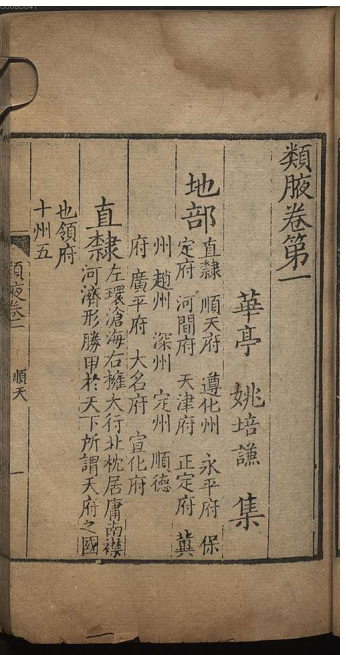 類腋卷第一
華亭 姚培謙 集
地部
直隸 順天府 遵化州 永平府 保
定府 河間府 天津府 正定府 冀
州 趙州 深州 定州 順德
府 廣平府 大名府 宣化府
直隸
左環滄海右擁太行北枕居庸南襟
河濟形勝甲於天下所謂天府之國
也領府
十州五
類腋卷一 順天 一